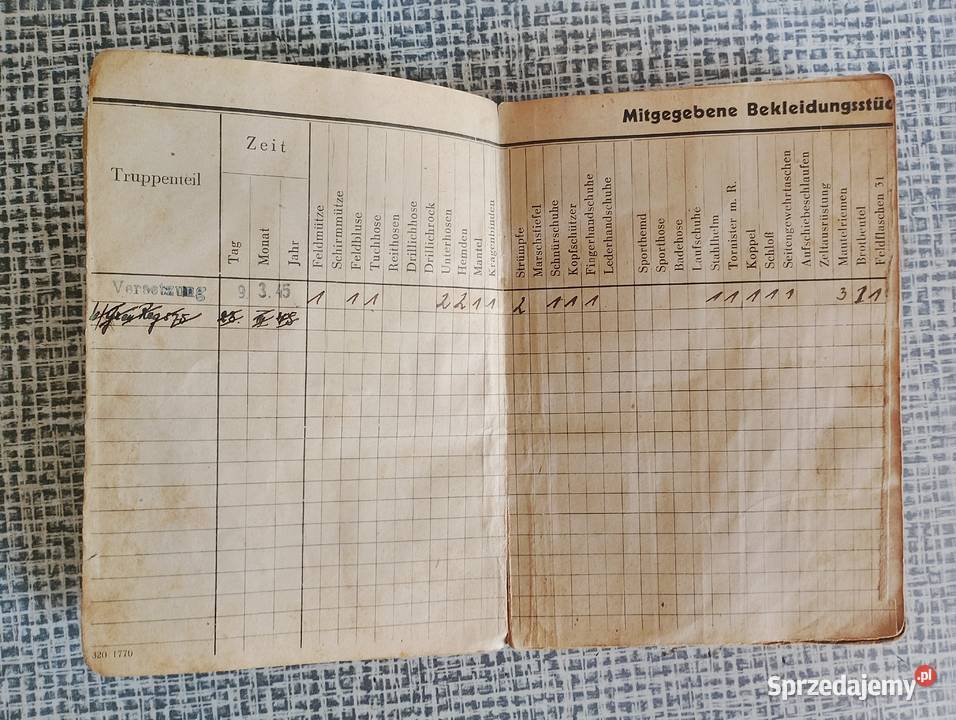 Mitgegebene Bekleidungsstüc
Truppenteil
Zeit
Tag
Monat
Jahr
Feldmütze
Schirmmütze
Feldbluse
Tuchhose
Reithosen
Drillichhose
Drillichrock
Unterhosen
Hemden
Mantel
Kragenbinden
Strümpfe
Marschstiefel
Schnürschuhe
Kopfschützer
Fingerhandschuhe
Lederhandschuhe
Sporthemd
Sporthose
Badehose
Laufschuhe
Stahlhelm
Tornister m. R.
Koppel
Schloß
Seitengewehrtaschen
Aufschiebeschlaufen
Zeltausrüstung
Mantelriemen
Brotbeutel
Feldflaschen 31
Versetzung 9. 3. 45 1 1 1 2 2 1 1 2 1 1 1 1 1 1 1 1 3 1 1
320 1770
Sprzedajemy.pl